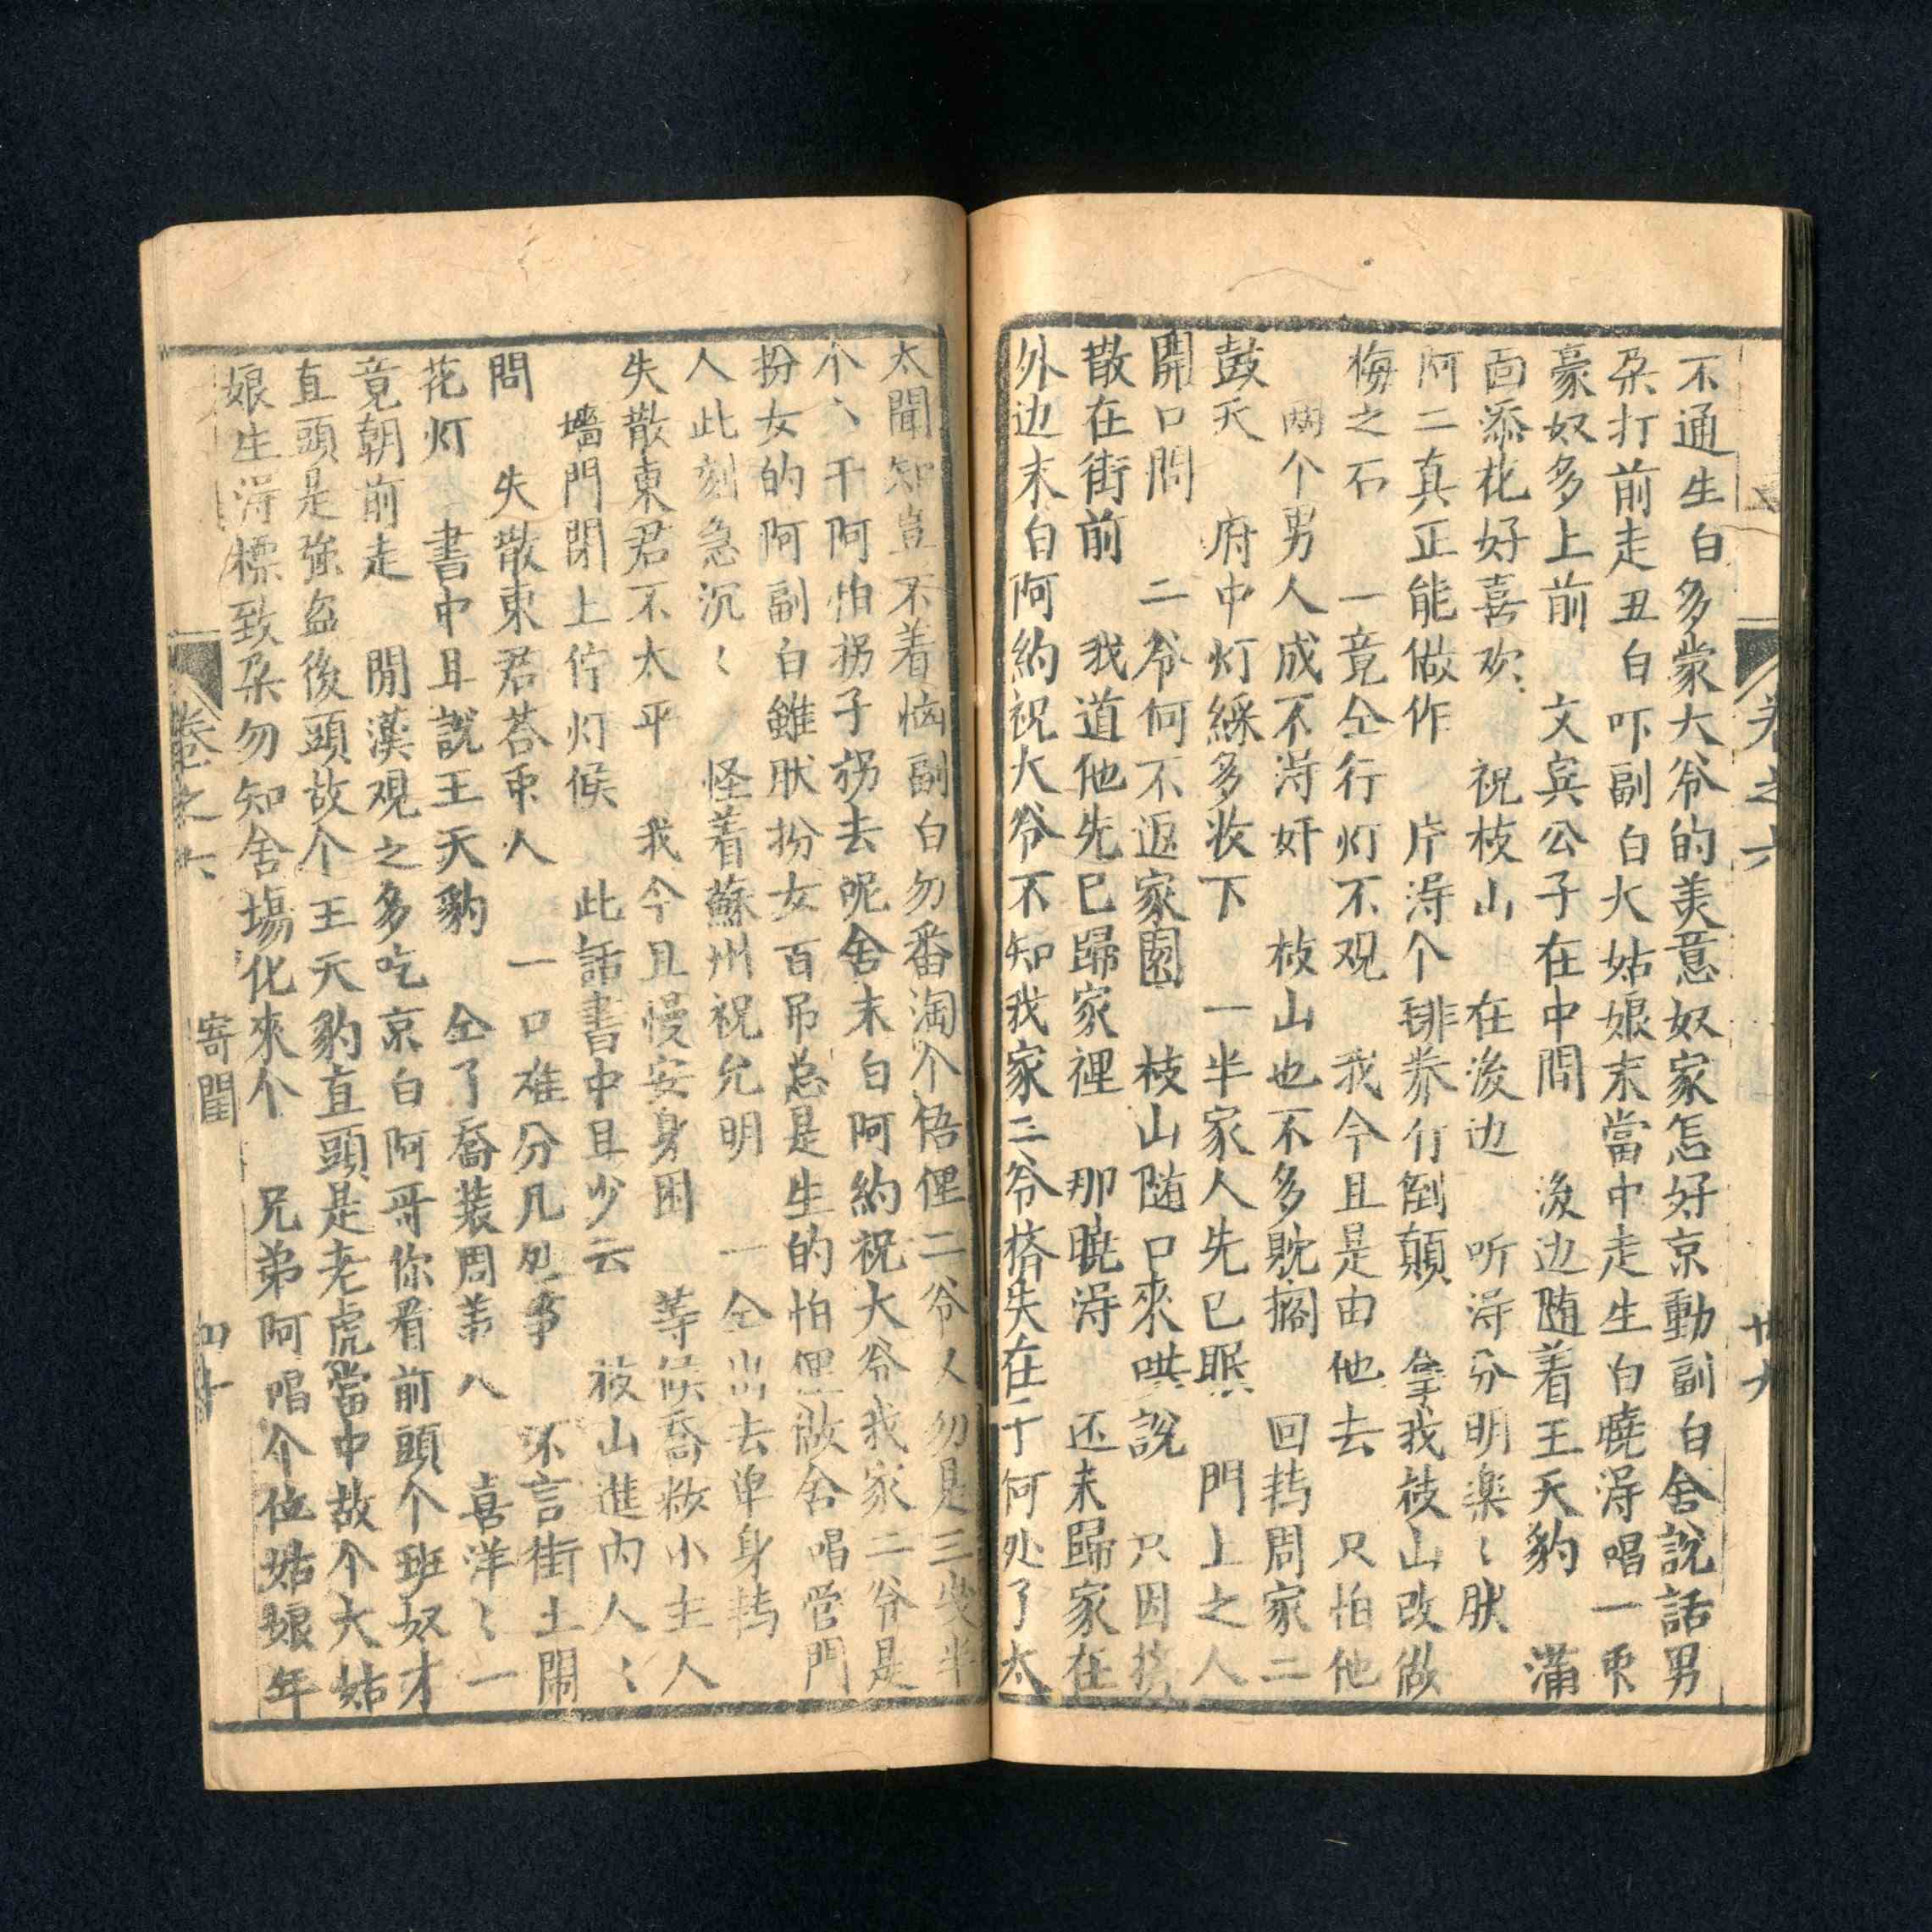 不通生白多蒙大爷的美意奴家怎好京動副白舍說話男
朶打前走丑白吓副白大姑娘末當中走生白曉淂唱一衆
豪奴多上前 文賓公子在中間 後边随着王天豹 滿
面添花好喜欢 祝枝山 在後边 听淂分明樂〻肰
阿二真正能做作 庁淂个 行倒顛 拿我枝山改做
梅之石 一竟仝行灯不观 我今且是由他去 只怕他
兩个男人成不淂奸 枝山也不多躭擱 回轉周家二
鼓天 府中灯綵多妝下 一半家人先已眠 門上之人
開口問 二爷何不返家園 枝山随口來哄說 只因擠
散在街前 我道他先已歸家裡 那曉淂 还未歸家在
外边末白阿約祝大爷不知我家二爷擠失在于何処了太
太聞知豈不着恼副白勿番淘个悟俚二爷又勿是三歲半
个丶干阿怕拐子拐去呢舍末白阿約祝大爷我家二爷是
扮女的阿副白雖肰扮女百吊总是生的怕俚做舍唱管門
人此刻急沉〻 怪着蘇州祝允明 一仝出去单身轉
失散東君不太平 我今且慢安身困 等候喬妝小主人
墻門閉上佇灯候 此話書中且少云 枝山進内人〻
問 失散東君荅衆人 一口难分几処事 不言街土鬧
花灯 書中且說王天豹 仝了喬装周苐八 喜洋〻一
竟朝前走 閒漢观之多吃京白阿哥你看前頭个班奴才
直頭是强盗後頭故个王天豹直頭是老虎當中故个大姑
娘生淂標致朶勿知舍塲化來个 兄弟阿唱个位姑娘年
卷之六 寄閨 四十
卷之六 廿九